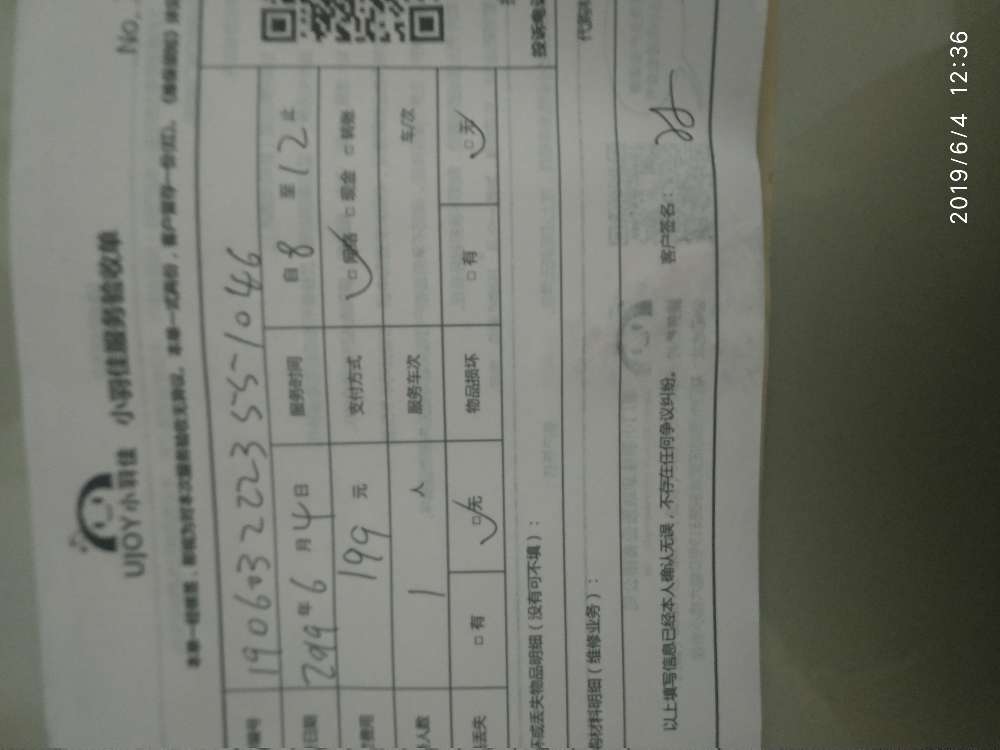 No.
UJOY小羽佳 小羽佳服务验收单
本单一经核签，即视为对本次服务验收无异议。本单一式两份，客户留存一份(红)。
编号 190603222355-1046
日期 2019年6月4日 服务时间 自8至12止
费用 199元 支付方式 □网络 □现金 □转账
人数 1人 服务车次 车/次
丢失 □有 □无 物品损坏 □有 □无
坏或丢失物品明细（没有可不填）：
材料明细（维修业务）：
以上填写信息已经本人确认无误，不存在任何争议纠纷。 客户签名：
投诉电话
2019/6/4 12:36